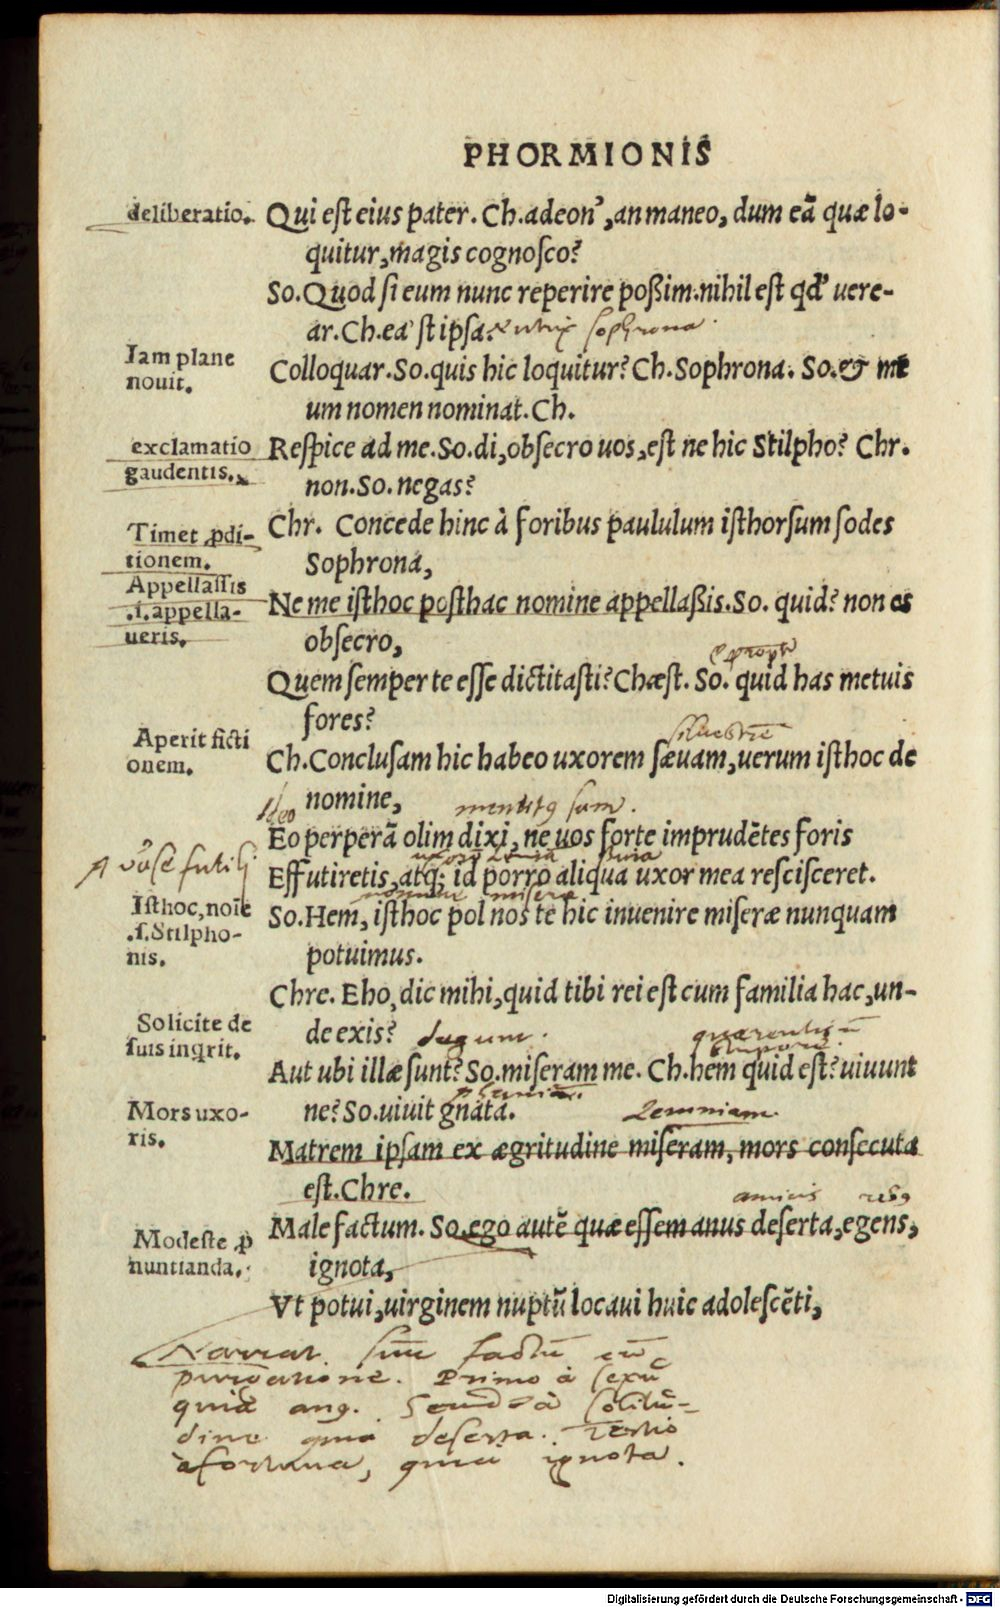 PHORMIONIS
deliberatio. Qui est eius pater. Ch. adeon', an maneo, dum eã quæ lo-
quitur, magis cognosco?
So. Quod si eum nunc reperire poßim. nihil est qd' uere-
ar. Ch. ea' st ipsa. nutrix sophrona.
Iam plane Colloquar. So. quis hic loquitur? Ch. Sophrona. So. & me
nouit. um nomen nominat. Ch.
exclamatio Respice ad me. So. di, obsecro uos, est ne hic Stilpho? Chr.
gaudentis. non. So. negas?
Timet ꝓdi- Chr. Concede hinc à foribus paululum isthorsum sodes
tionem. Sophrona,
Appellassis Ne me isthoc posthac nomine appellaßis. So. quid? non es
.i. appella-
ueris. obsecro,
Quem semper te esse dictitasti? Chæst. So. quid has metuis
fores?
Aperit ficti
onem. Ch. Conclusam hic habeo uxorem sæuam, uerum isthoc de
ideo nomine, mentitꝰ sum.
Eo perperã olim dixi, ne uos forte imprudẽtes foris
Effutiretis, atq; id porro aliqua uxor mea rescisceret.
Isthoc, noĩe So. Hem, isthoc pol nos te hic inuenire miseræ nunquam
.s. Stilpho-
nis. potuimus.
Chre. Eho, dic mihi, quid tibi rei est cum familia hac, un-
Solicite de de exis?
suis inqrit. Aut ubi illæ sunt? So. miseram me. Ch. hem quid est? uiuunt
Mors uxo- ne? So. uiuit gnata.
Lemniam.
ris. Matrem ipsam ex ægritudine miseram, mors consecuta
est. Chre.
amicis rebꝰ
Male factum. So. ego autẽ quæ essem anus deserta, egens,
Modeste ꝓ
nuntianda. ignota,
Vt potui, uirginem nuptũ locaui huic adolescẽti,
Narrat suũ factũ cũ
purgatione. Primo à sexu
quia anꝰ. Secundo à solitu-
dine quia deserta. Tertio
à fortuna, quia ignota.
Digitalisierung gefördert durch die Deutsche Forschungsgemeinschaft - DFG